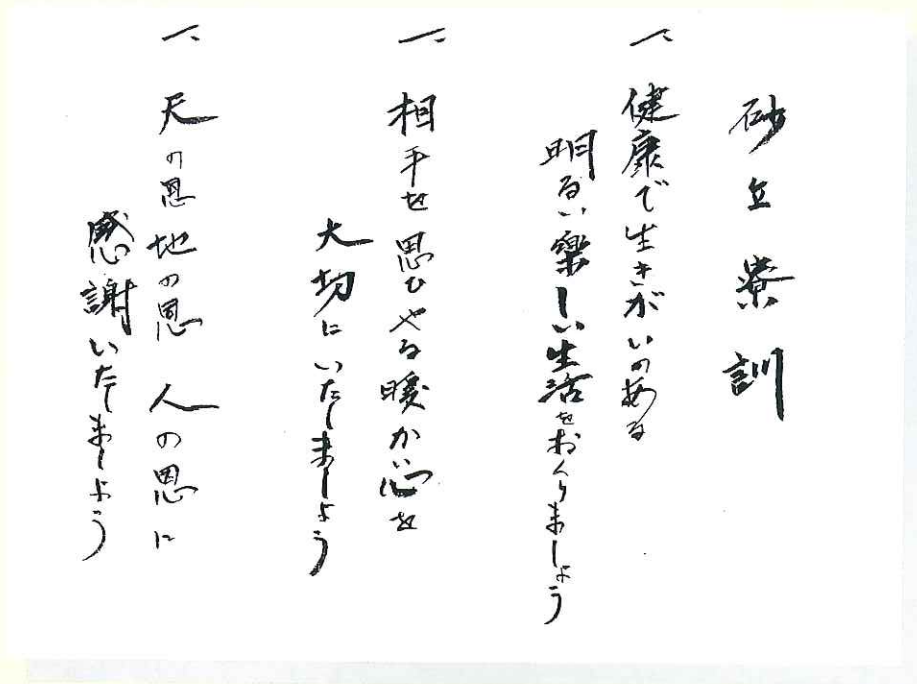 砂丘寮訓
一、健康で生きがいのある
明るい楽しい生活をおくりましょう
一、相手を思ひやる暖か心を
大切にいたしましょう
一、天の恩地の恩 人の恩に
感謝いたしましょう